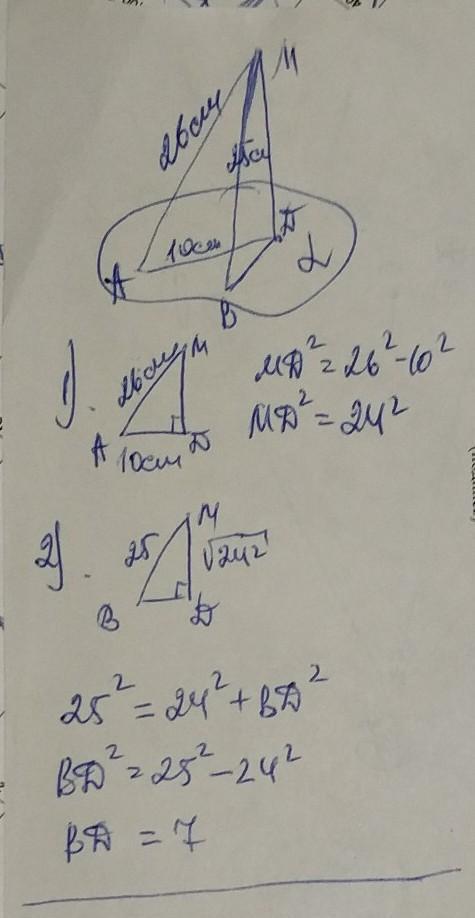 M
26см
25см
10см
D
A
B
α
1).
26см
M
A
D
10см
MD² = 26² - 10²
MD² = 24²
2).
25
M
√24²
B
D
25² = 24² + BD²
BD² = 25² - 24²
BD = 7